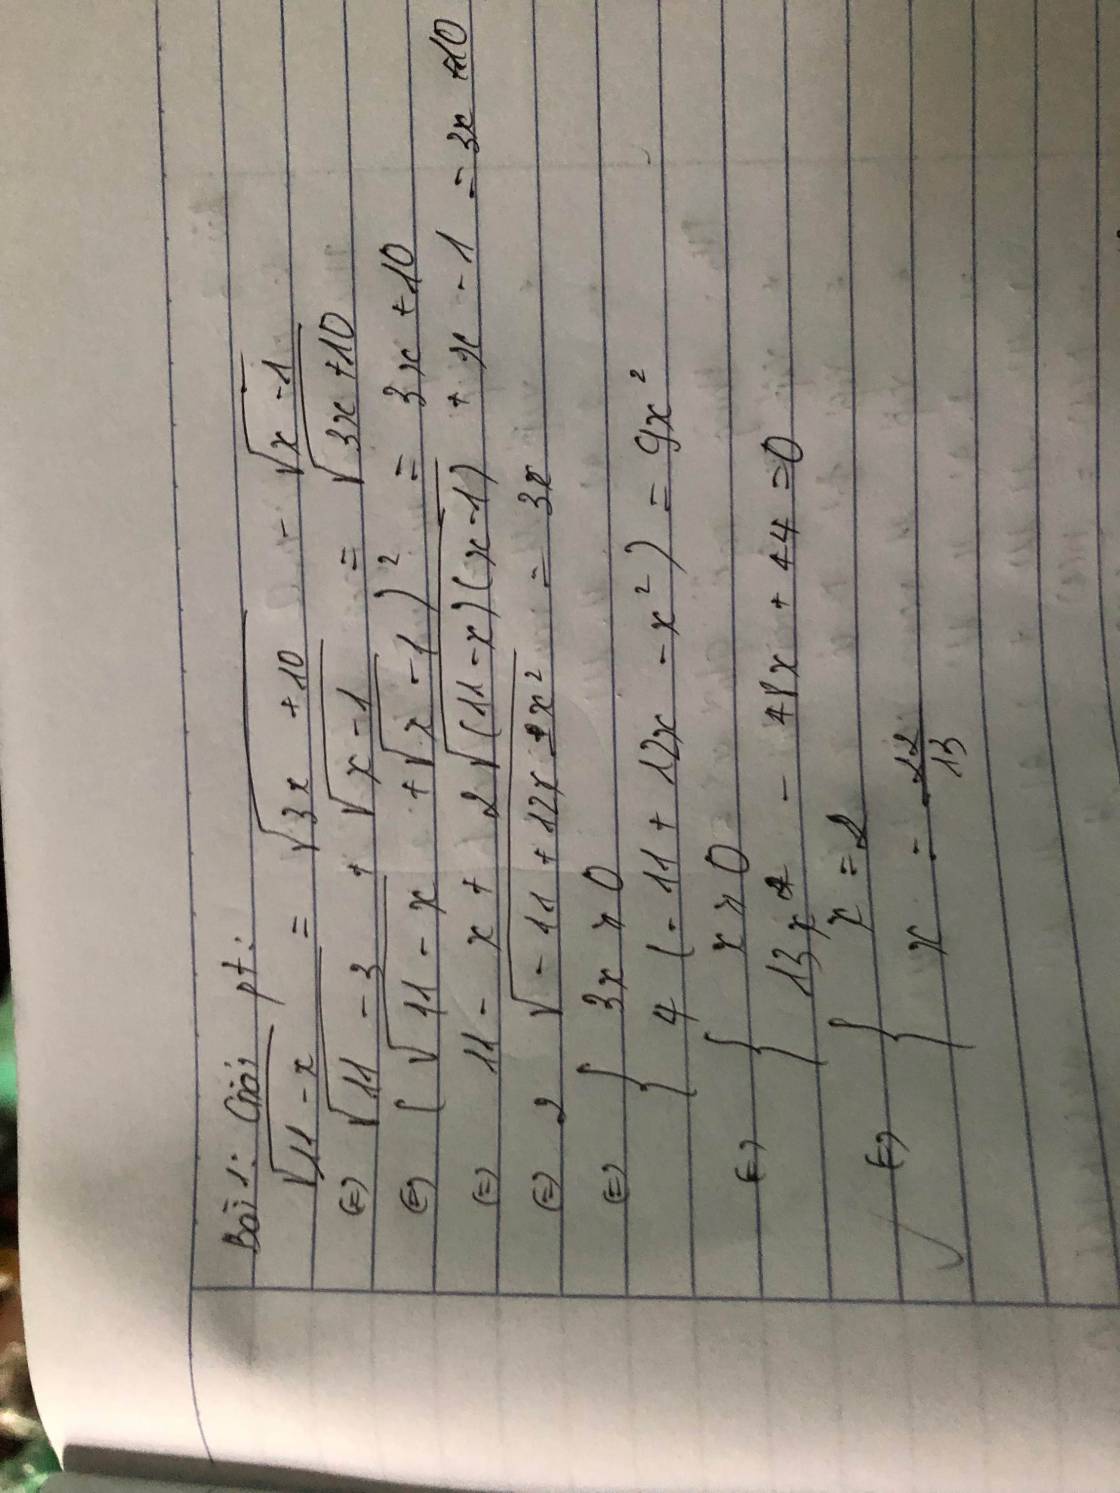 Bài 1: Giải pt:
√(11 - x) = √(3x + 10) - √(x - 1)
(=) √(11 - 3) + √(x - 1) = √(3x + 10)
(=) (√(11 - x) + √(x - 1))² = 3x + 10
(=) 11 - x + 2√((11 - x)(x - 1)) + x - 1 = 3x + 10
(=) 2√(-11 + 12x - x²) = 3x
(=) { 3x ≥ 0
4 (-11 + 12x - x²) = 9x²
(=) { x ≥ 0
13x² - 48x + 44 = 0
(=) { x = 2
x = 22/13